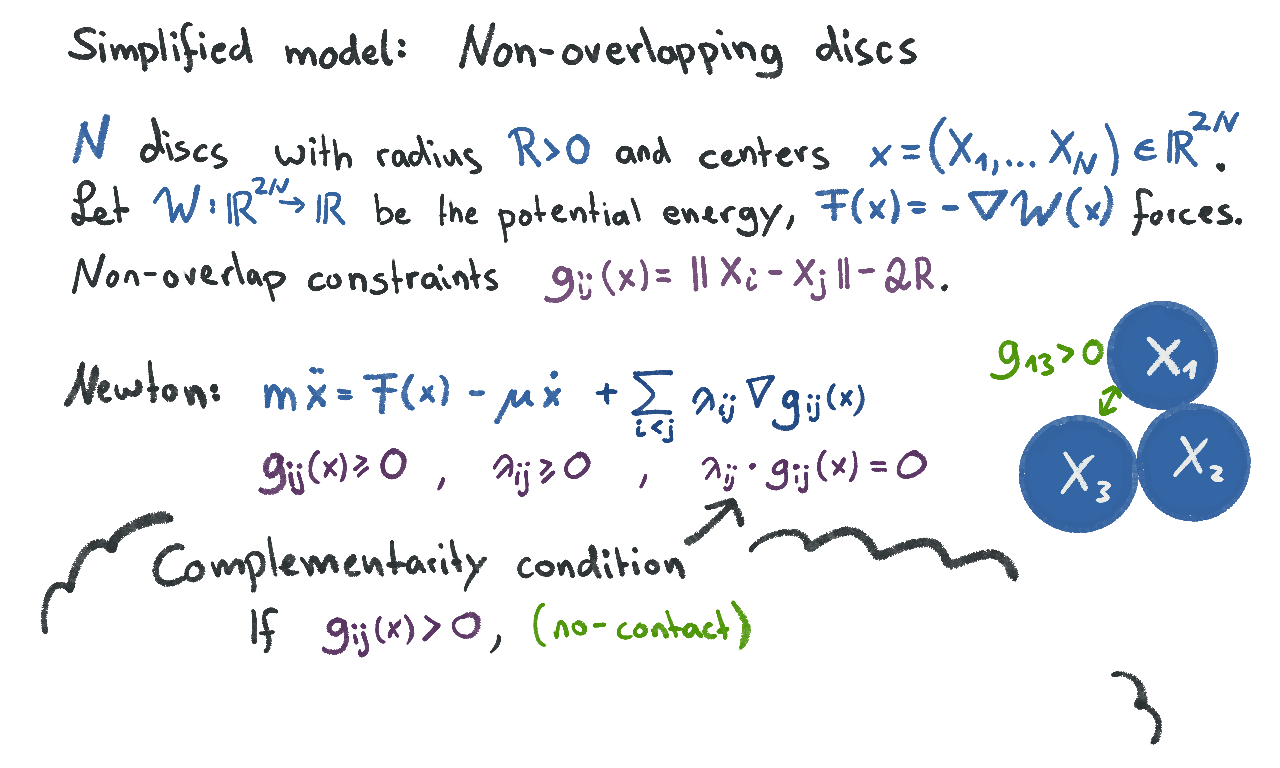 Simplified model: Non-overlapping discs
N discs with radius R>0 and centers x=(X₁,... X_N)∈ℝ²ᴺ.
Let W:ℝ²ᴺ→ℝ be the potential energy, F(x)=-∇W(x) forces.
Non-overlap constraints g_ij(x)=||X_i-X_j||-2R.
g₁₃>0
X₁
X₂
X₃
Newton: mẍ=F(x)-μẋ +∑_{i<j} λ_ij∇g_ij(x)
g_ij(x)≥0, λ_ij≥0, λ_ij·g_ij(x)=0
Complementarity condition
If g_ij(x)>0, (no-contact)